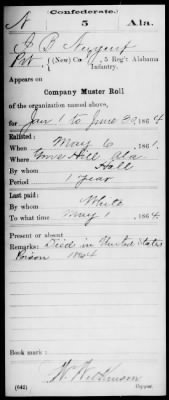 Confederate.
N 5 Ala.
J B Nugent
Pvt, (New) Co , 5 Reg't Alabama
Infantry.
Appears on
Company Muster Roll
of the organization named above,
for Jan 1 to June 30, 1864
Enlisted:
When May 6, 1861.
Where Grove Hill Ala
By whom Hall
Period 1 year
Last paid:
By whom White
To what time May 1, 1864
Present or absent
Remarks: Died in United States
Prison 1864
Book mark:
W. Wilkinson
(642) Copyist.